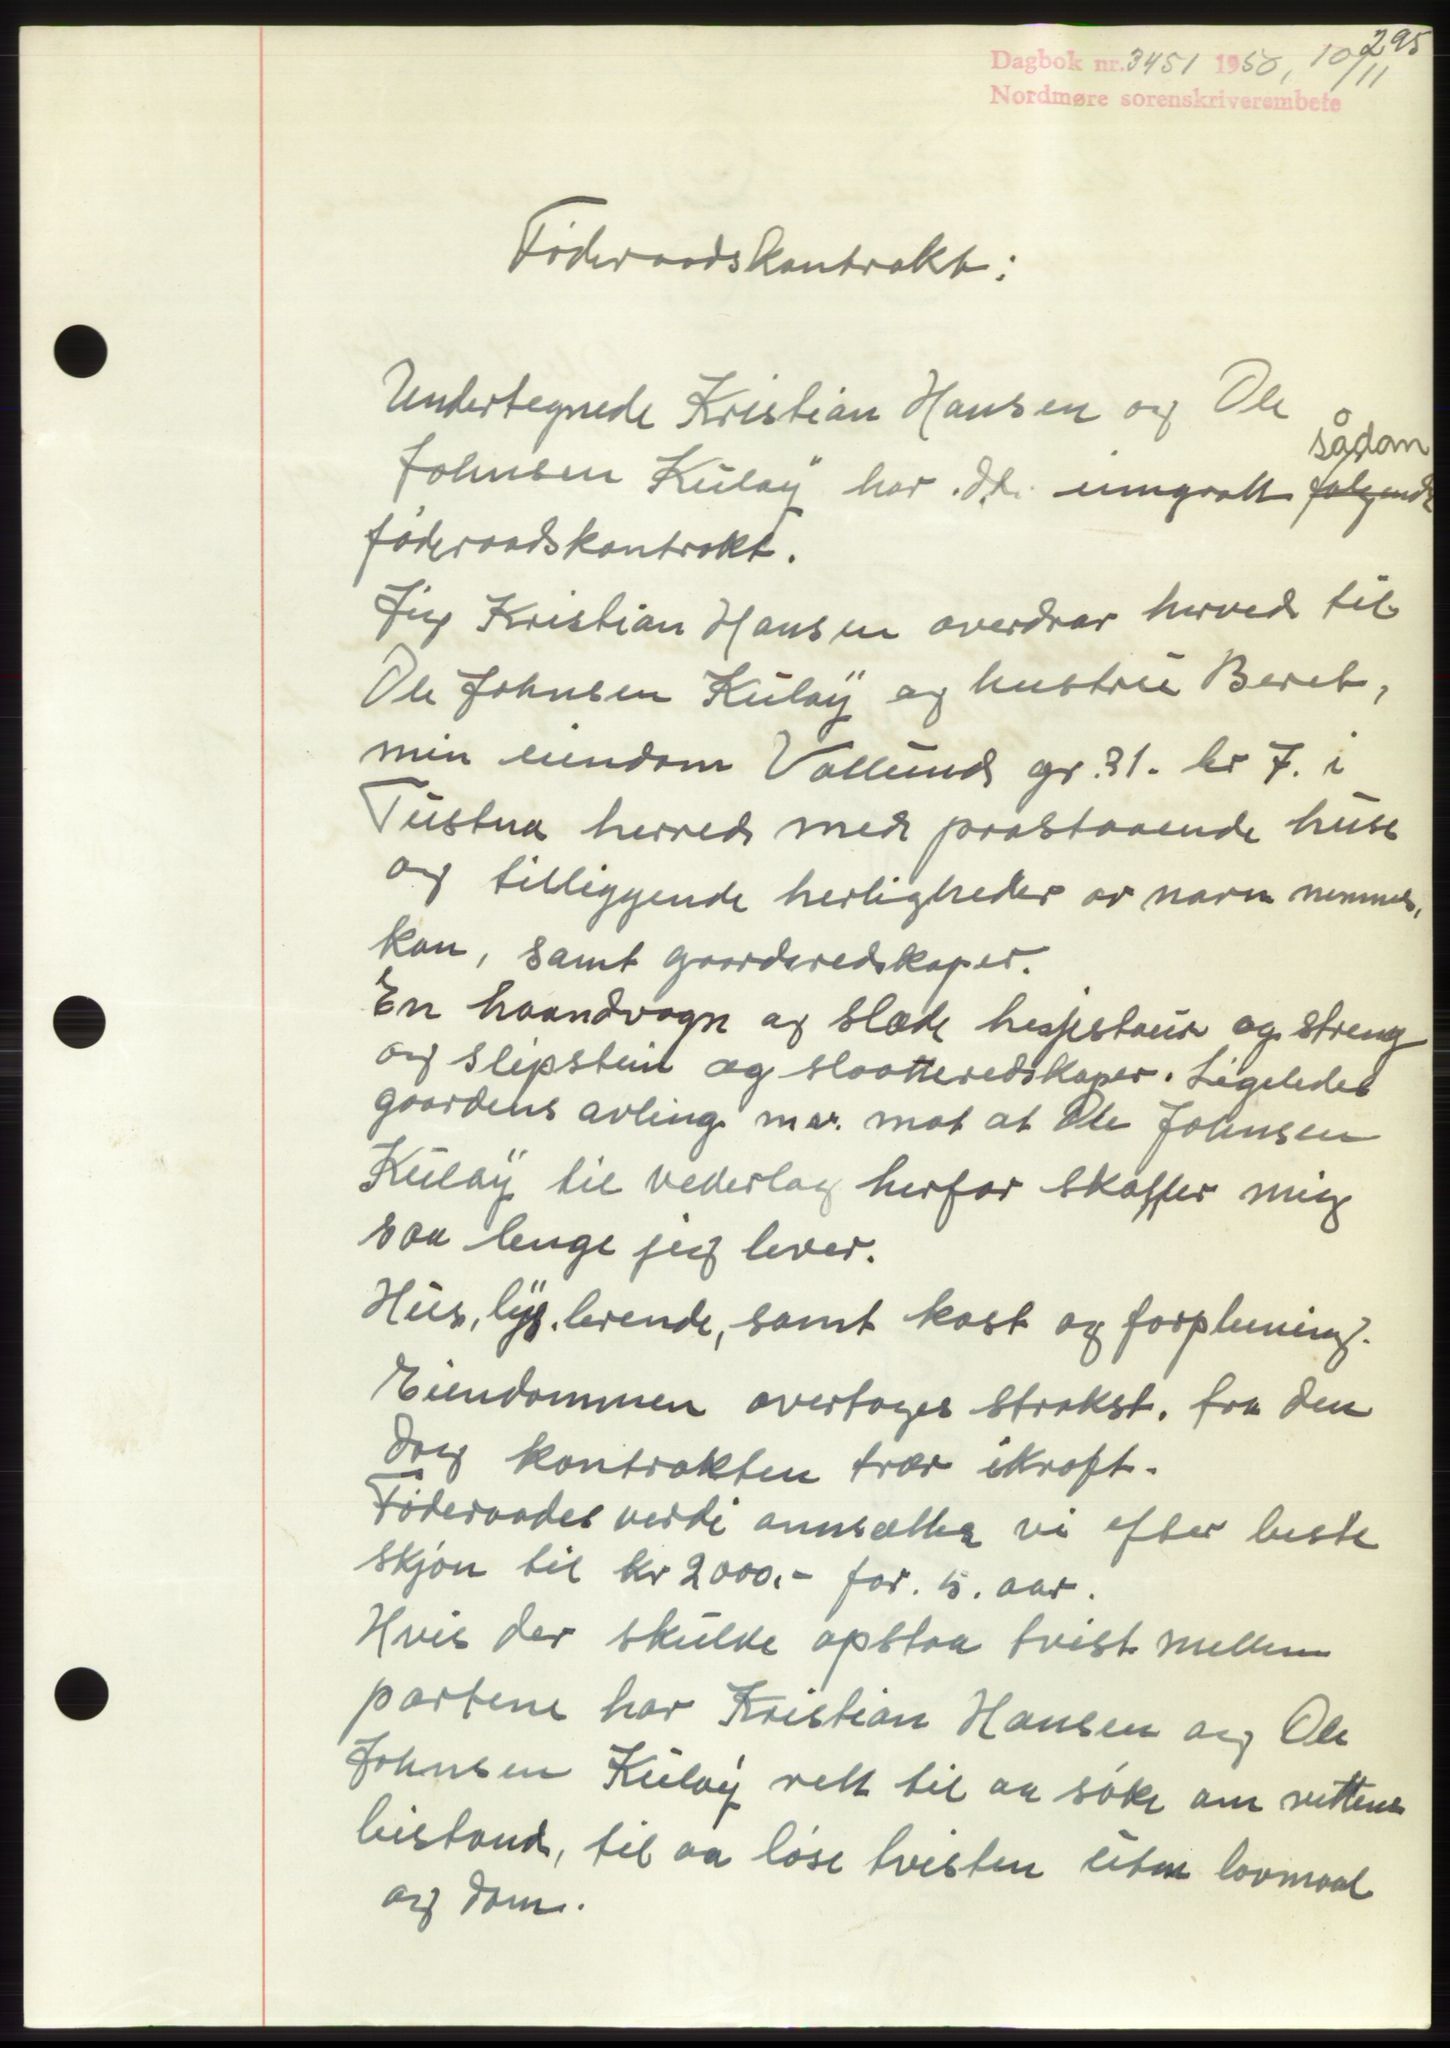 295
Dagbok nr. 3451 1950, 10/11
Nordmøre sorenskriverembete
Föderaadskontrakt:
Undertegnede Kristian Hansen og Ole
sådan
Johnsen Kuløy har d.d. inngatt folgende
föderaadskontrakt.
Jeg Kristian Hansen overdrar herved til
Ole Johnsen Kuløy og hustru Beret,
min eiendom Vollund gr. 31. br 7. i
Tustna herred med paastaaende huse
og tilliggende herligheder av navn nevnes,
kan, samt gaardsredskaper.
En haandvogn og slæde hesjestaur og streng
og slipstein og slaatteredskaper. Ligeledes
gaardens avling m.v. mot at Ole Johnsen
Kuløy til vederlag herfor skaffer mig
saa lenge jeg lever.
Hus, lys, brende, samt kost og forpleining.
Eiendommen overtages strakst, fra den
dag kontrakten trær ikraft.
Föderaadet verdi annsætter vi efter beste
skjön til kr 2000.- for. 5. aar.
Hvis der skulde opstaa tvist mellem
partene har Kristian Hansen og Ole
Johnsen Kuløy rett til aa söke om rettens
bistand, til aa löse tvisten uten lovmaal
og dom.